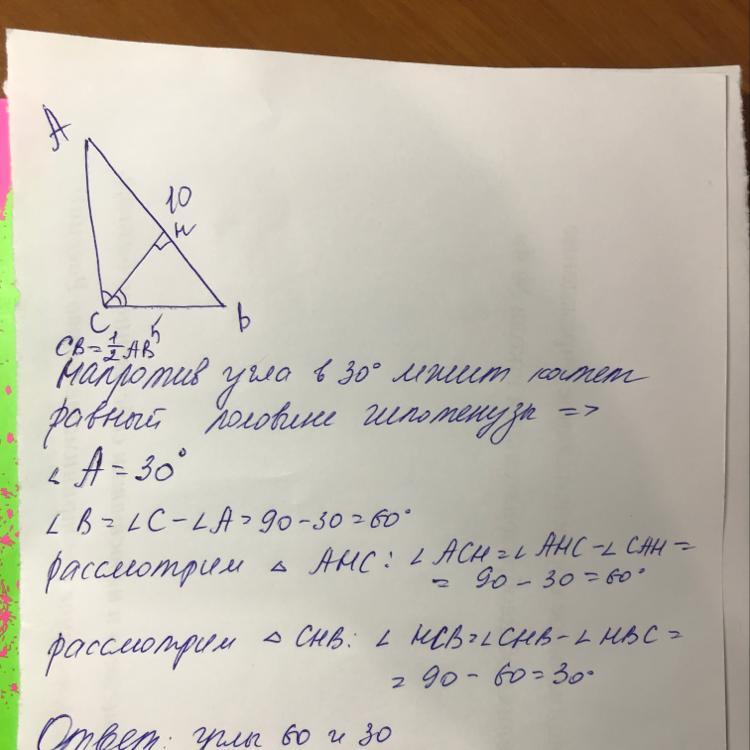 A
10
H
C
5
B
CB = 1/2 AB
Напротив угла в 30° лежит катет
равный половине гипотенузы =>
∠ A = 30°
∠ B = ∠C - ∠A = 90 - 30 = 60°
рассмотрим △ AHC: ∠ ACH = ∠ AHC - ∠ CAH =
= 90 - 30 = 60°
рассмотрим △ CHB: ∠ HCB = ∠CHB - ∠ HBC =
= 90 - 60 = 30°
Ответ: углы 60 и 30